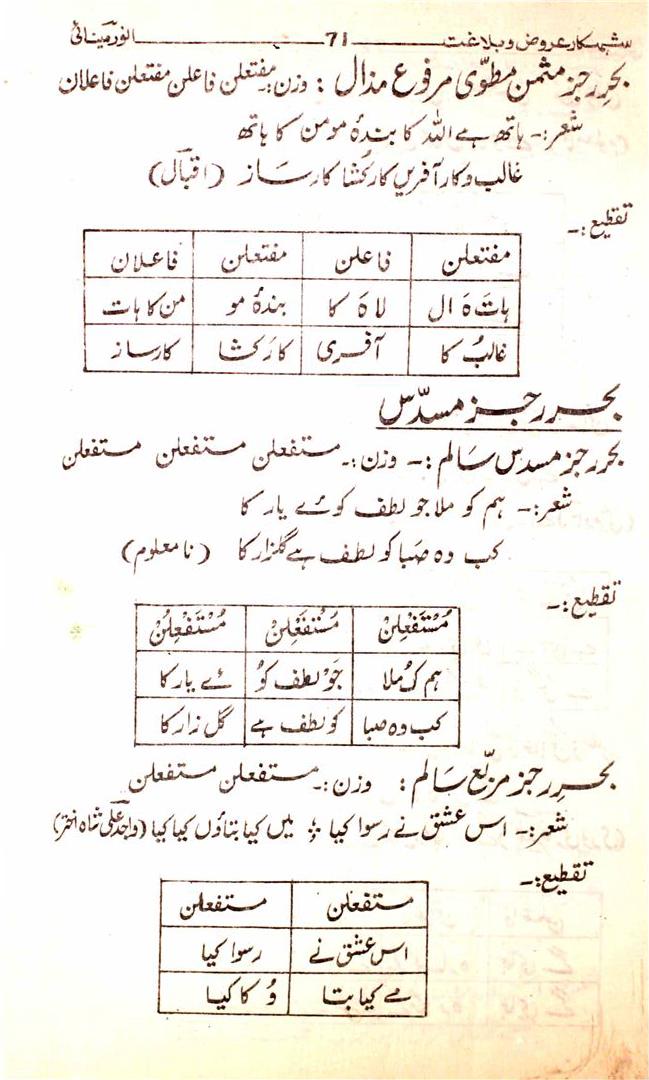 شہکار عروض و بلاغت 71 انور مینائی
بحرِ رجز مثمن مطوّی مرفوع مذال : وزن:۔ مفتعلن فاعلن مفتعلن فاعلان
شعر:۔ ہاتھ ہے اللہ کا بندۂ مومن کا ہاتھ
غالب و کار آفریں کار کُشا کار ساز (اقبالؔ)
تقطیع:۔
مفتعلن فاعلن مفتعلن فاعلان
ہاتَ ہَ ال لاہَ کا بندۂ مو من کا ہات
غالبُ کا آفری کارَکشا کارساز
بحرِ رجز مسدّس
بحرِ رجز مسدس سالم :۔ وزن:۔ مستفعلن مستفعلن مستفعلن
شعر:۔ ہم کو ملا جو لطف کوئے یار کا
کب وہ صبا کو لطف ہے گلزار کا (نا معلوم)
تقطیع:۔
مُسْتَفْعِلُنْ مُسْتَفْعِلُنْ مُسْتَفْعِلُنْ
ہم کُ ملا جَوْ لطف کوُ ئے یار کا
کب وہ صبا کو لطف ہے گل زار کا
بحرِ رجز مربّع سالم : وزن:۔ مستفعلن مستفعلن
شعر:۔ اس عشق نے رسوا کیا ؛ میں کیا بتاؤں کیا کیا (واجد علی شاہ اخترؔ)
تقطیع:۔
مستفعلن مستفعلن
اس عشق نے رسوا کیا
مے کیا بتا وُ کا کیا